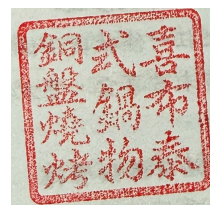 喜布泰
式鍋物
銅盤燒烤